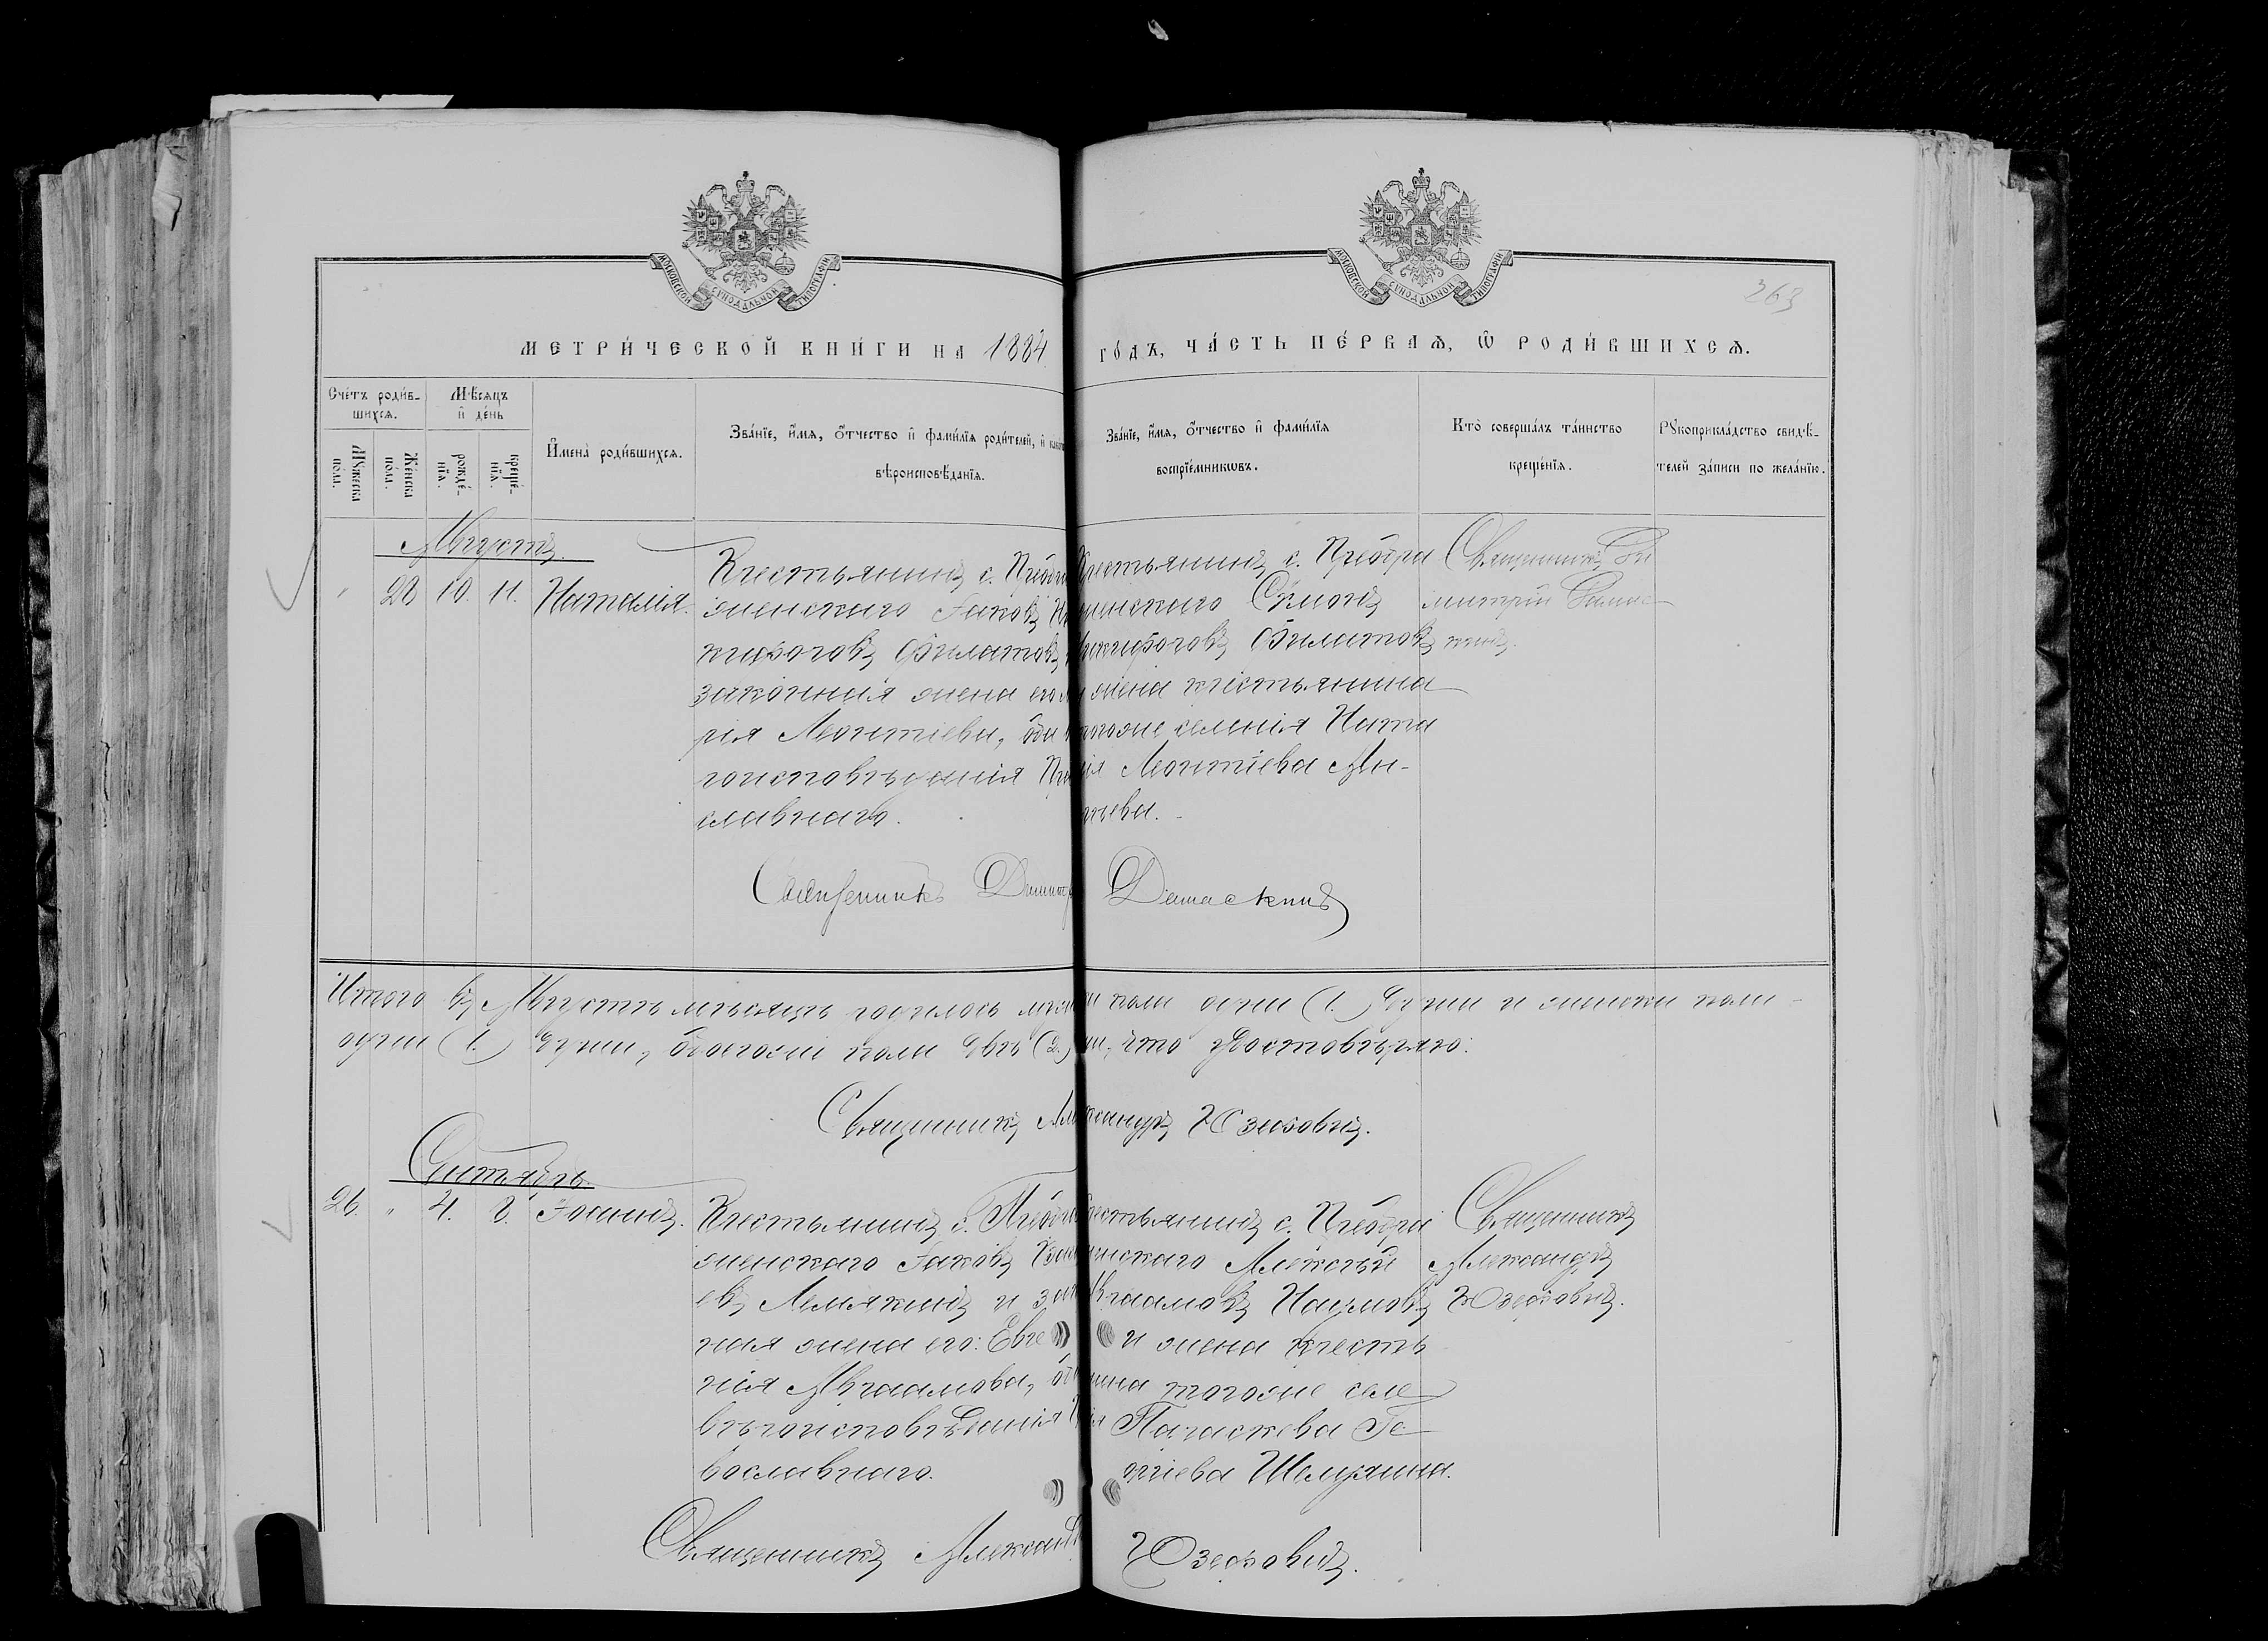 МОСКОВСКОЙ СѴНОДАЛЬНОЙ ТИПОГРАФІИ
МОСКОВСКОЙ СѴНОДАЛЬНОЙ ТИПОГРАФІИ
263
МЕТРИ́ЧЕСКОЙ КНИ́ГИ НА 1884 ГО́ДЪ, ЧА́СТЬ ПЕ́РВАѦ, Ѡ РОДИ́ВШИХСѦ.
Сче́тъ роди́в-
шихсѧ.
Мѣ́сѧцъ
и҆ де́нь
Мꙋ́жеска по́ла.
Же́нска по́ла.
рожде́-нїѧ.
креще́-нїѧ.
И҆мена̀ роди́вшихсѧ.
Зва́нїе, и҆́мѧ, ѻ҆́тчество и҆ фами́лїѧ роди́телей, и҆
вѣроисповѣ́данїѧ.
Зва́нїе, и҆́мѧ, ѻ҆́тчество и҆ фами́лїѧ
воспрїе́мникѡвъ.
Кто̀ соверша́лъ та́инство
креще́нїѧ.
Рꙋкоприкла́дство свидѣ́-
телей за́писи по жела́нїю.
Августъ.
28 10. 11. Наталія.
Крестьянинъ с. Преобра
женскаго Іаковъ Ни
кифоровъ Филатовъ
законная жена его Ма
рія Леонтіева, оба
роисповѣданія Пра
славнаго.
Крестьянинъ с. Преобра
женскаго Симонъ
Никифоровъ Филатовъ
жена крестьянина
тогоже селенія Ната
лія Леонтіева Ан-
Священникъ Ди
митрій Дамас
кинъ.
Священникъ Димитрій Дамаскинъ
Итого въ Августѣ мѣсяцѣ родилось мужеска пола одна (1.) душа и женска пола
одна (1.) душа, обоегоже пола двѣ (2.) что удостовѣряю:
Священникъ Александръ Юзефовичъ.
Сентябрь.
26. " 4. 8. Іоаннъ.
Крестьянинъ с. Преобра
женскаго Іаковъ
евъ Лемякинъ и закон
ная жена его: Евге
нія Авраамова, оба
вѣроисповѣданія
вославнаго.
Крестьянинъ с. Преобра
женскаго Алексѣй
Авраамовъ Наумовъ
и жена кресть
янина тогоже селе
нія Параскева Ге
оргіева
Священникъ
Александръ
Юзефовичъ.
Священникъ Александръ Юзефовичъ.